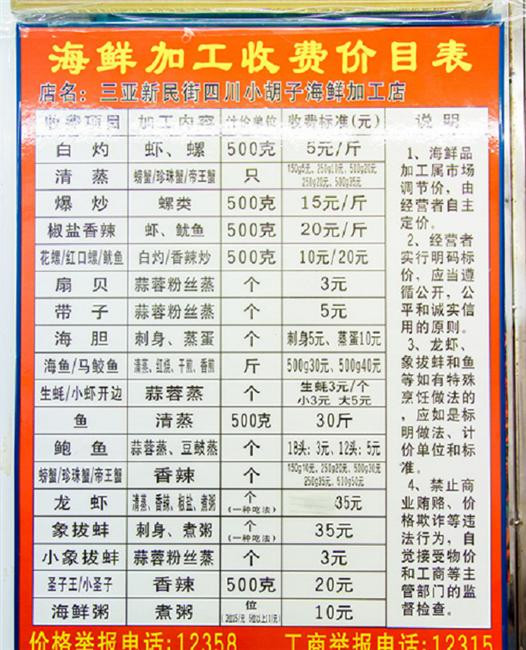 海鲜加工收费价目表
店名：三亚新民街四川小胡子海鲜加工店
收费项目 加工内容 计价单位 收费标准(元)
白灼 虾、螺 500克 5元/斤
清蒸 螃蟹/珍珠蟹/帝王蟹 只
爆炒 螺类 500克 15元/斤
椒盐香辣 虾、鱿鱼 500克 20元/斤
花螺/红口螺/鱿鱼 白灼/香辣炒 500克 10元/20元
扇贝 蒜蓉粉丝蒸 个 3元
带子 蒜蓉粉丝蒸 个 5元
海胆 刺身、蒸蛋 个 刺身5元、蒸蛋10元
海鱼/马鲛鱼 清蒸、红烧、干煎、香煎 斤 500g30元、500g40元
生蚝/小虾开边 蒜蓉蒸 个 生蚝3元/个
小3元 大5元
鱼 清蒸 500克 30斤
鲍鱼 蒜蓉蒸、豆豉蒸 个 18头：3元、12头：5元
螃蟹/珍珠蟹/帝王蟹 香辣 个 150g10元、250g20元、500g30元
250g35元、510g50元
龙虾 清蒸、香辣、椒盐、煮粥 个
(一种吃法) 35元
象拔蚌 刺身、煮粥 个
(一种吃法) 35元
小象拔蚌 蒜蓉粉丝蒸 个 3元
圣子王/小圣子 香辣 500克 20元
海鲜粥 煮粥 位 10元
说明
1、海鲜品
加工属市场
调节价，由
经营者自主
定价。
2、经营者
实行明码标
价，应当遵
循公开，公
平和诚实信
用的原则。
3、龙虾、
象拔蚌和鱼
等如有特殊
烹饪做法的
，应如是标
明做法、计
价单位和标
准。
4、禁止商
业贿赂、价
格欺诈等违
法行为，自
觉接受物价
和工商等主
管部门的监
督检查。
价格举报电话:12358 工商举报电话:12315